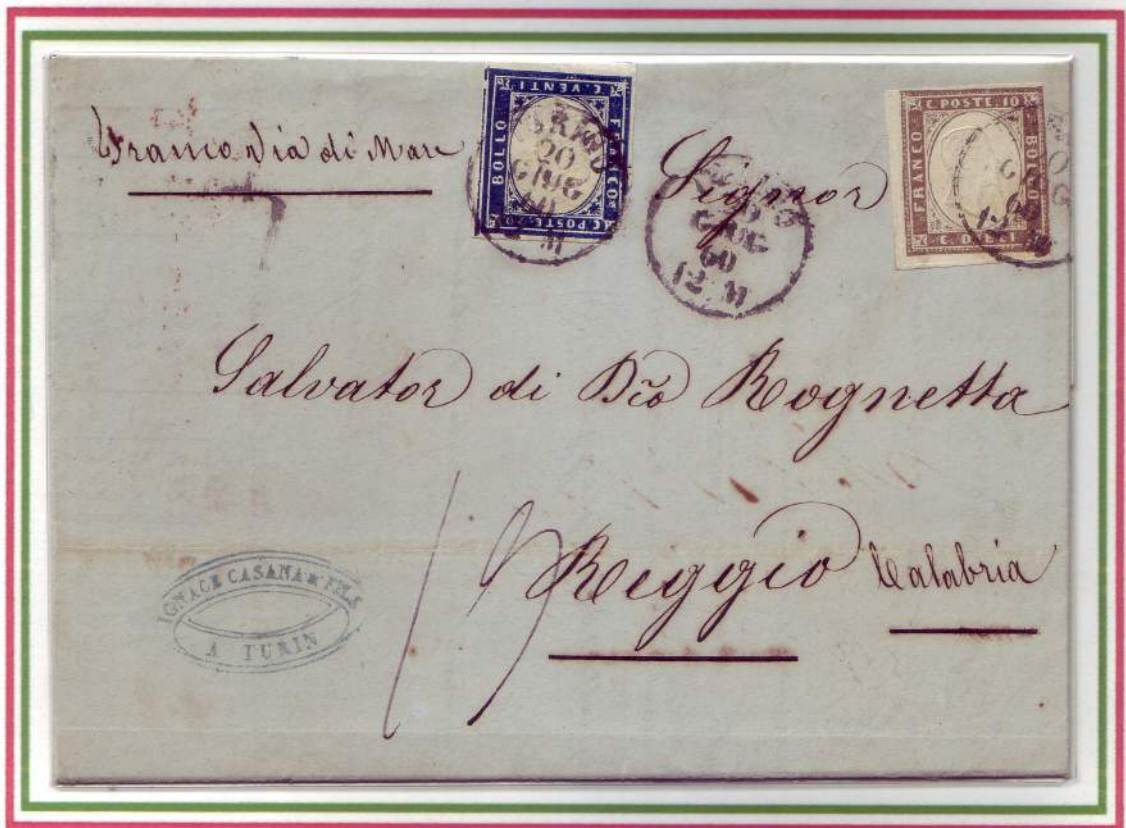 Franco Via di Mare
C. VENTI
BOLLO
FRANCO
C. POSTE 20
20
GIUG
60
Signor
GIUG
60
12 M
C. POSTE. 10
FRANCO
BOLLO
C. DIECI
Salvator di Dio Rognetta
Reggio Calabria
IGNACE CASANA & FILS
A TURIN